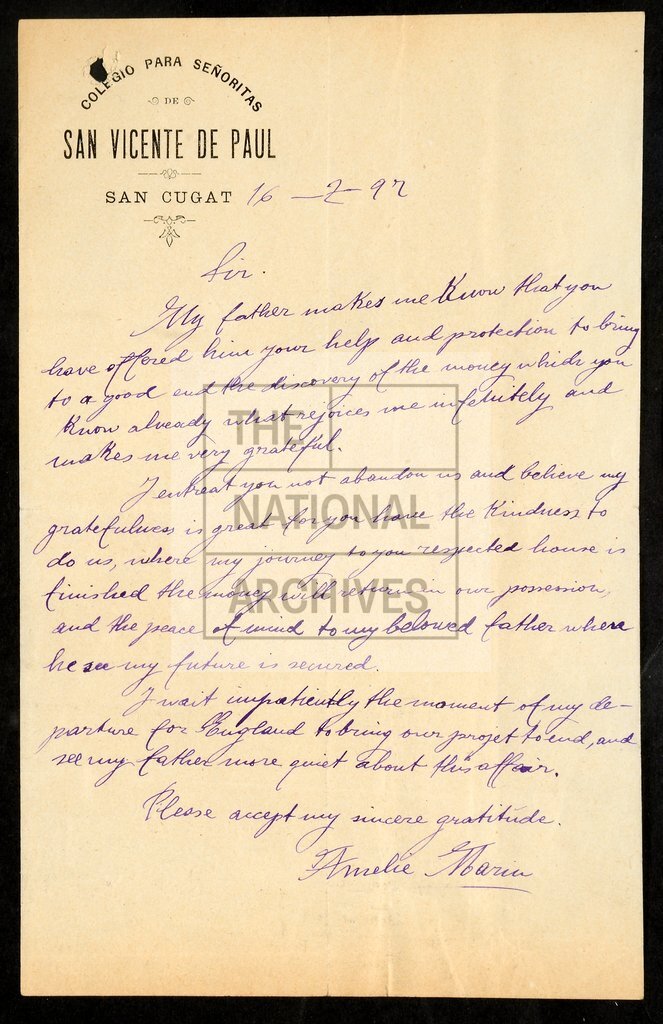 COLEGIO PARA SEÑORITAS
DE
SAN VICENTE DE PAUL
SAN CUGAT 16 - 2 - 97
Sir.
My father makes me Know that you
have offered him your help and protection to bring
to a good end the discovery of the money which you
Know already what rejoices me infinitely and
makes me very grateful.
I entreat you not abandon us and believe my
gratefulness is great for you have the Kindness to
do us, where my journey to you respected house is
finished the money will return in our possession,
and the peace of mind to my beloved father where
he see my future is secured.
I wait impatiently the moment of my de-
parture for England to bring our projet to end, and
see my father more quiet about this affair.
Please accept my sincere gratitude.
Amelie Marin
THE
NATIONAL
ARCHIVES